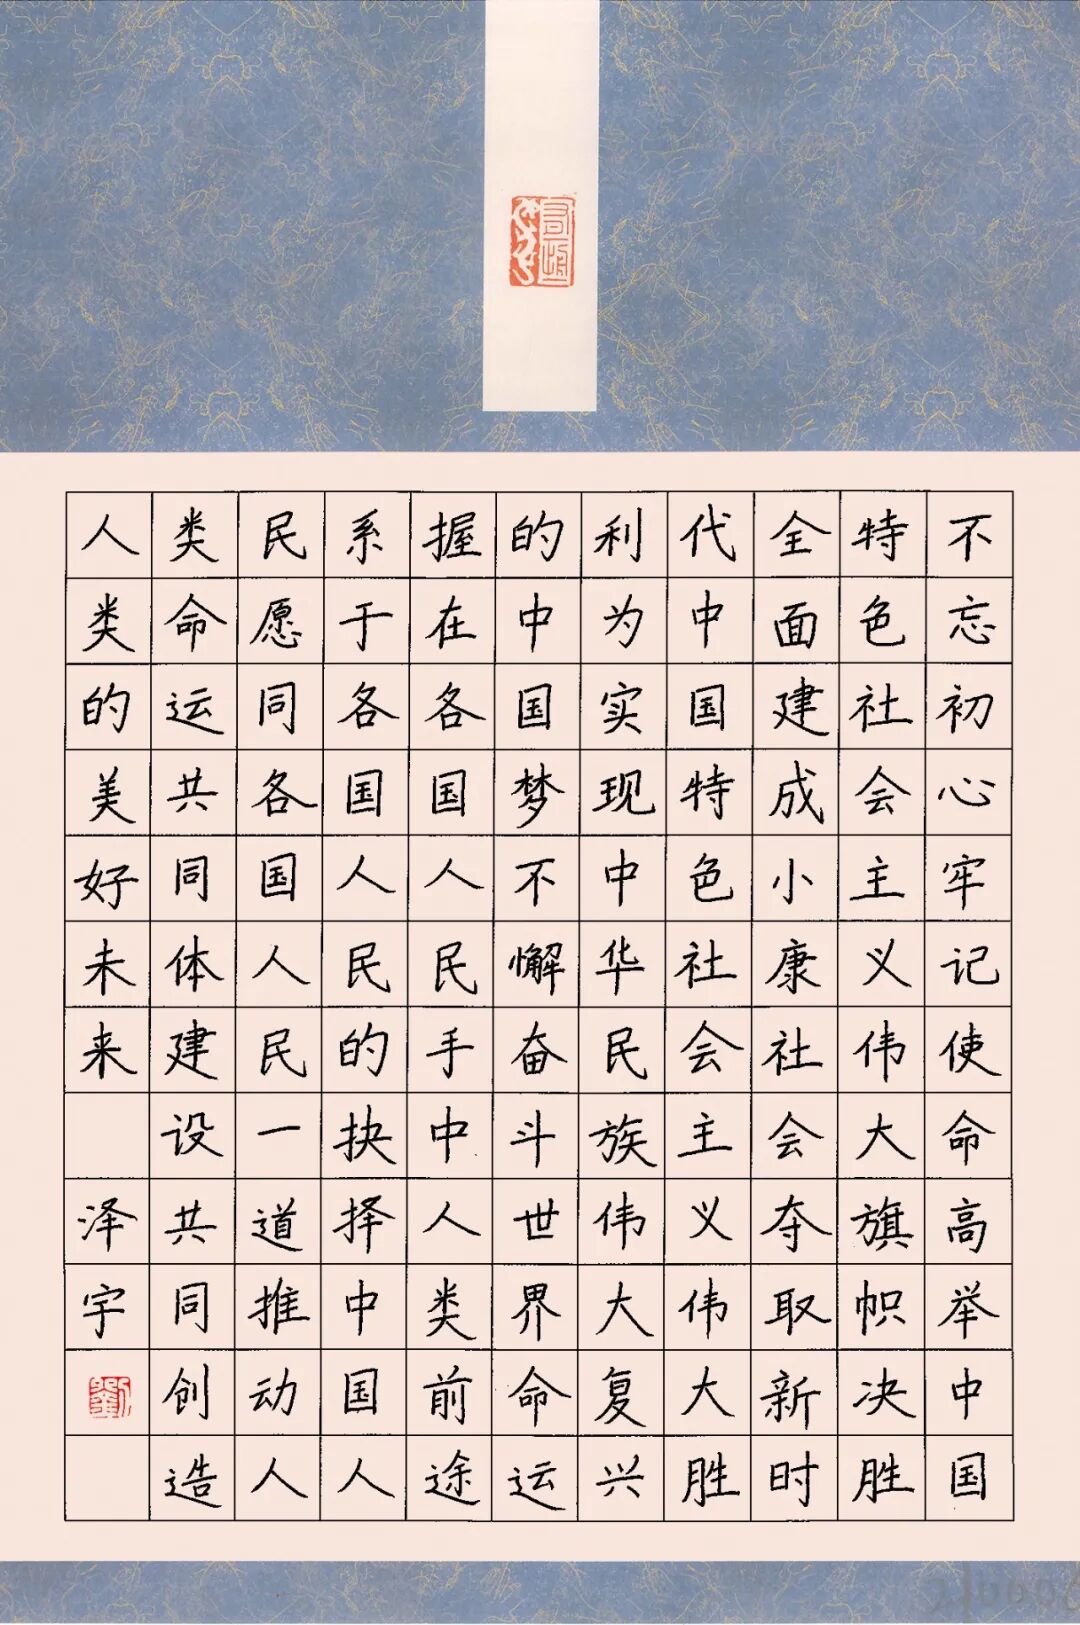 不忘初心牢记使命高举中国
特色社会主义伟大旗帜决胜
全面建成小康社会夺取新时
代中国特色社会主义伟大胜
利为实现中华民族伟大复兴
的中国梦不懈奋斗世界命运
握在各国人民手中人类前途
系于各国人民的抉择中国人
民愿同各国人民一道推动人
类命运共同体建设共同创造
人类的美好未来 泽宇